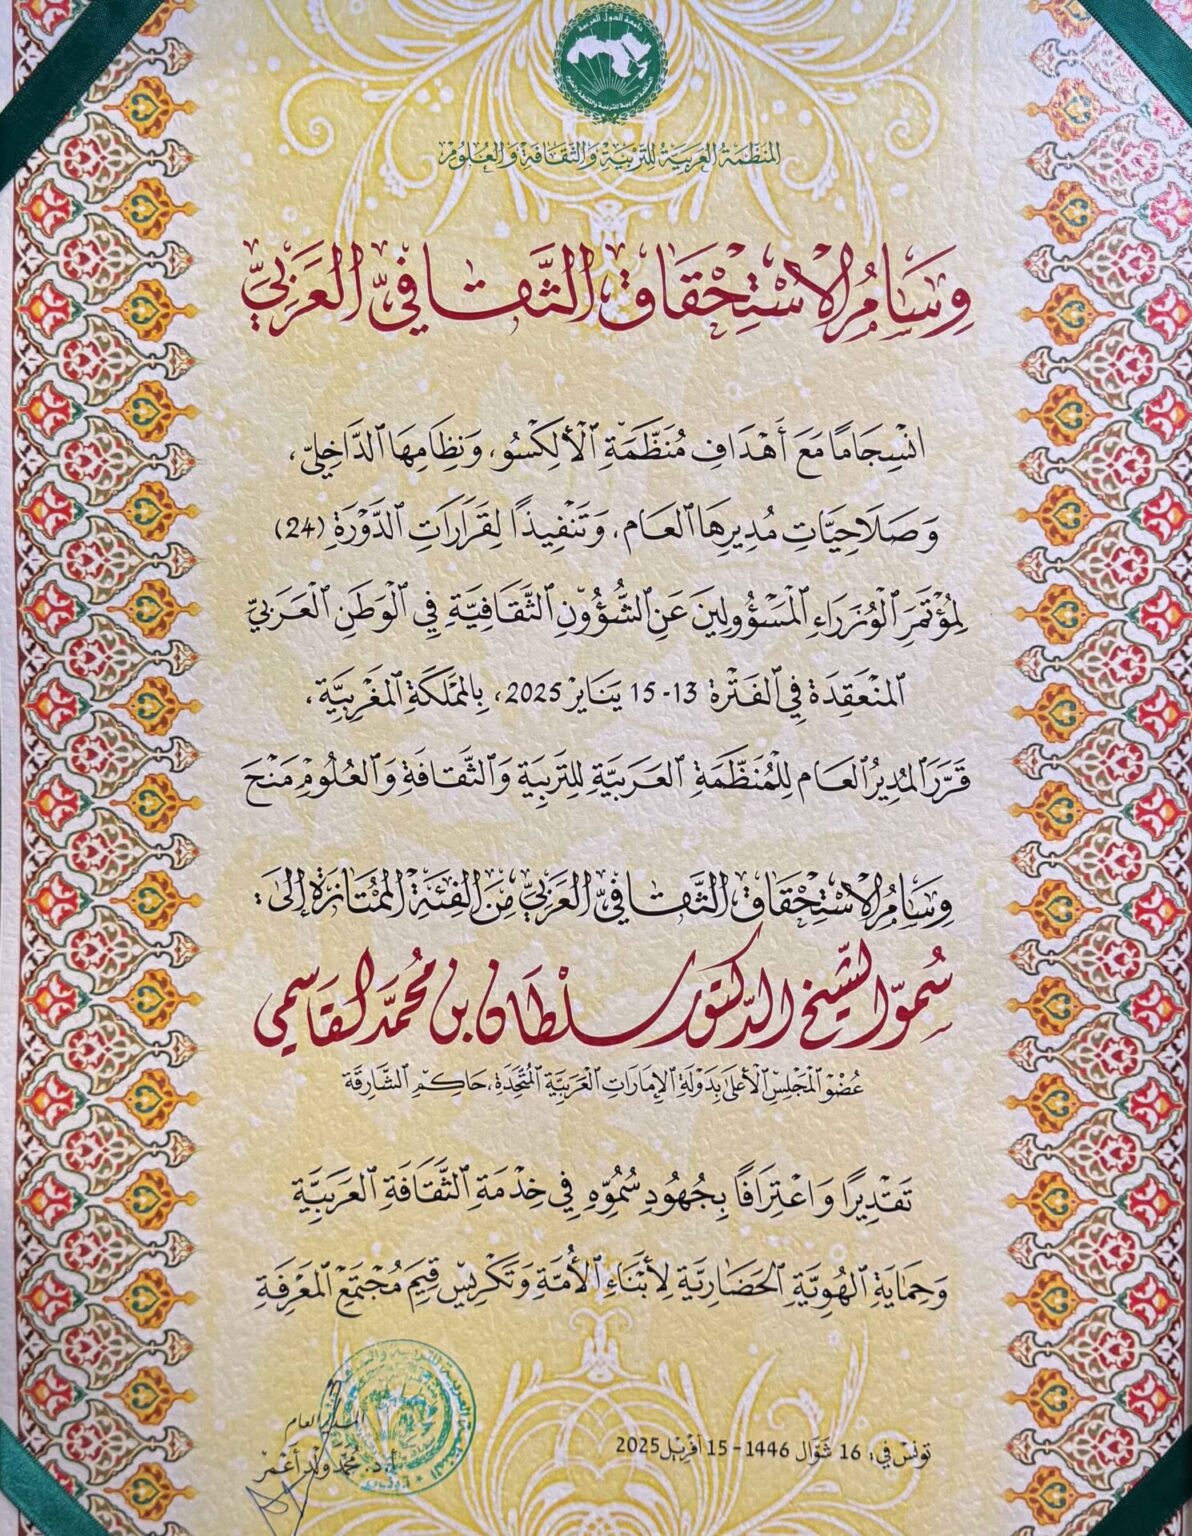 جامعة الدول العربية
المنظمة العربية للتربية والثقافة والعلوم
المُنَظَّمَةُ العَرَبِيَّةُ لِلتَّرْبِيَةِ وَالثَّقَافَةِ وَالعُلُومِ
وِسَامُ الاسْتِحْقَاقِ الثَّقَافِيِّ العَرَبِيِّ
انْسِجَامًا مَعَ أَهْدَافِ مُنَظَّمَةِ الْأَلِكْسُو، وَنِظَامِهَا الدَّاخِلِيِّ،
وَصَلَاحِيَّاتِ مُدِيرِهَا العَام، وَتَنْفِيذًا لِقَرَارَاتِ الدَّوْرَةِ (24)
لِمُؤْتَمَرِ الْوُزَرَاءِ الْمَسْؤُولِينَ عَنِ الشُّؤُونِ الثَّقَافِيَّةِ فِي الْوَطَنِ الْعَرَبِيِّ
المُنْعَقِدَةِ فِي الفَتْرَةِ 13-15 يَنَايَرْ 2025، بِالْمَمْلَكَةِ الْمَغْرِبِيَّةِ،
قَرَّرَ الْمُدِيرُ الْعَام لِلْمُنَظَّمَةِ الْعَرَبِيَّةِ لِلتَّرْبِيَةِ وَالثَّقَافَةِ وَالْعُلُومِ مَنْحَ
وِسَامِ الاسْتِحْقَاقِ الثَّقَافِيِّ العَرَبِيِّ مِنَ الفِئَةِ المُمْتَازَةِ إِلَى:
سُمُوّ الشَّيْخ الدّكتُور سُلْطَان بن مُحَمَّد القَاسِمِي
عُضْوُ الْمَجْلِسِ الْأَعْلَى بِدَوْلَةِ الإِمَارَاتِ الْعَرَبِيَّةِ الْمُتَّحِدَةِ، حَاكِمِ الشَّارِقَة
تَقْدِيرًا وَاعْتِرَافًا بِجُهُودِ سُمُوِّهِ فِي خِدْمَةِ الثَّقَافَةِ الْعَرَبِيَّةِ
وَحِمَايَةِ الْهُوِيَّةِ الْحَضَارِيَّةِ لِأَبْنَاءِ الْأُمَّةِ وَتَكْرِيسِ قِيَمِ مُجْتَمَعِ الْمَعْرِفَةِ
تونس في: 16 شَوَّال 1446 - 15 أفريل 2025
المدير العام
أ.د. مُحَمَّد وَلَد أَعْمَرْ